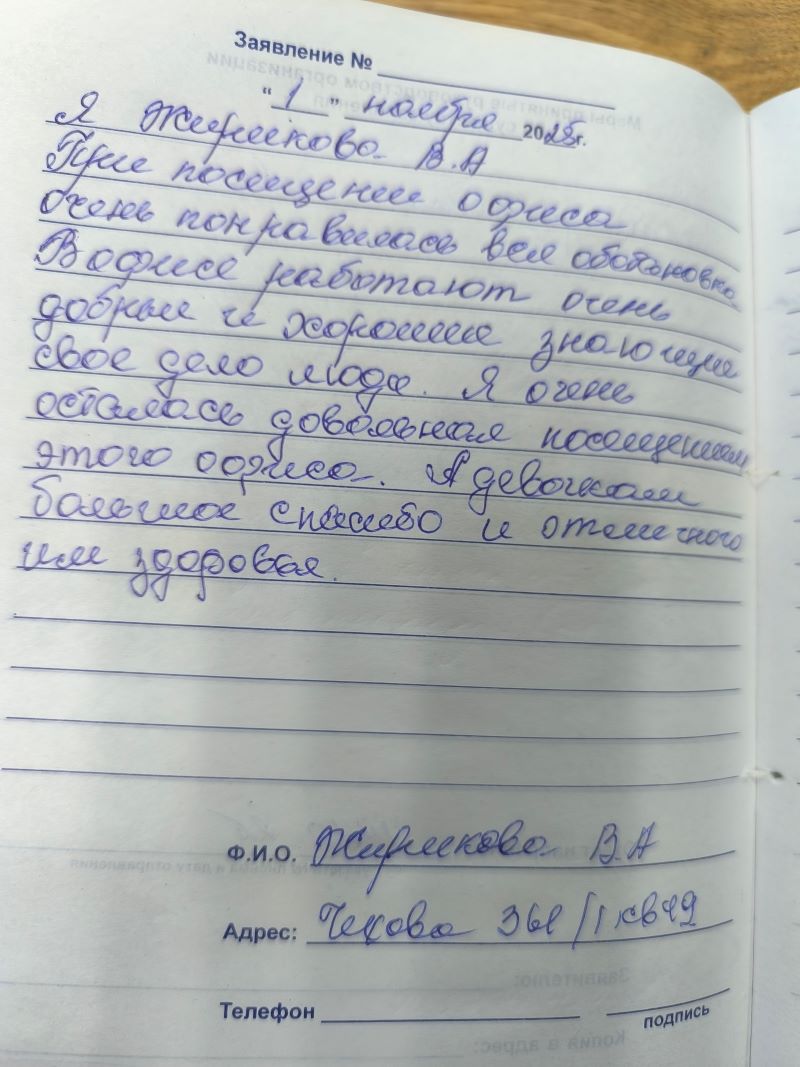 Заявление №
"1" ноября 2023г.
Я Жирикова В.А
При посещении офиса
очень понравилась вся обстановка
В офисе работают очень
добрые и хорошие знающие
свое дело люди. Я очень
осталась довольная посещением
этого офиса. А девочкам
большое спасибо и отличного
им здоровья.
Ф.И.О. Жирикова В.А
Адрес: Чехова
Телефон
подпись